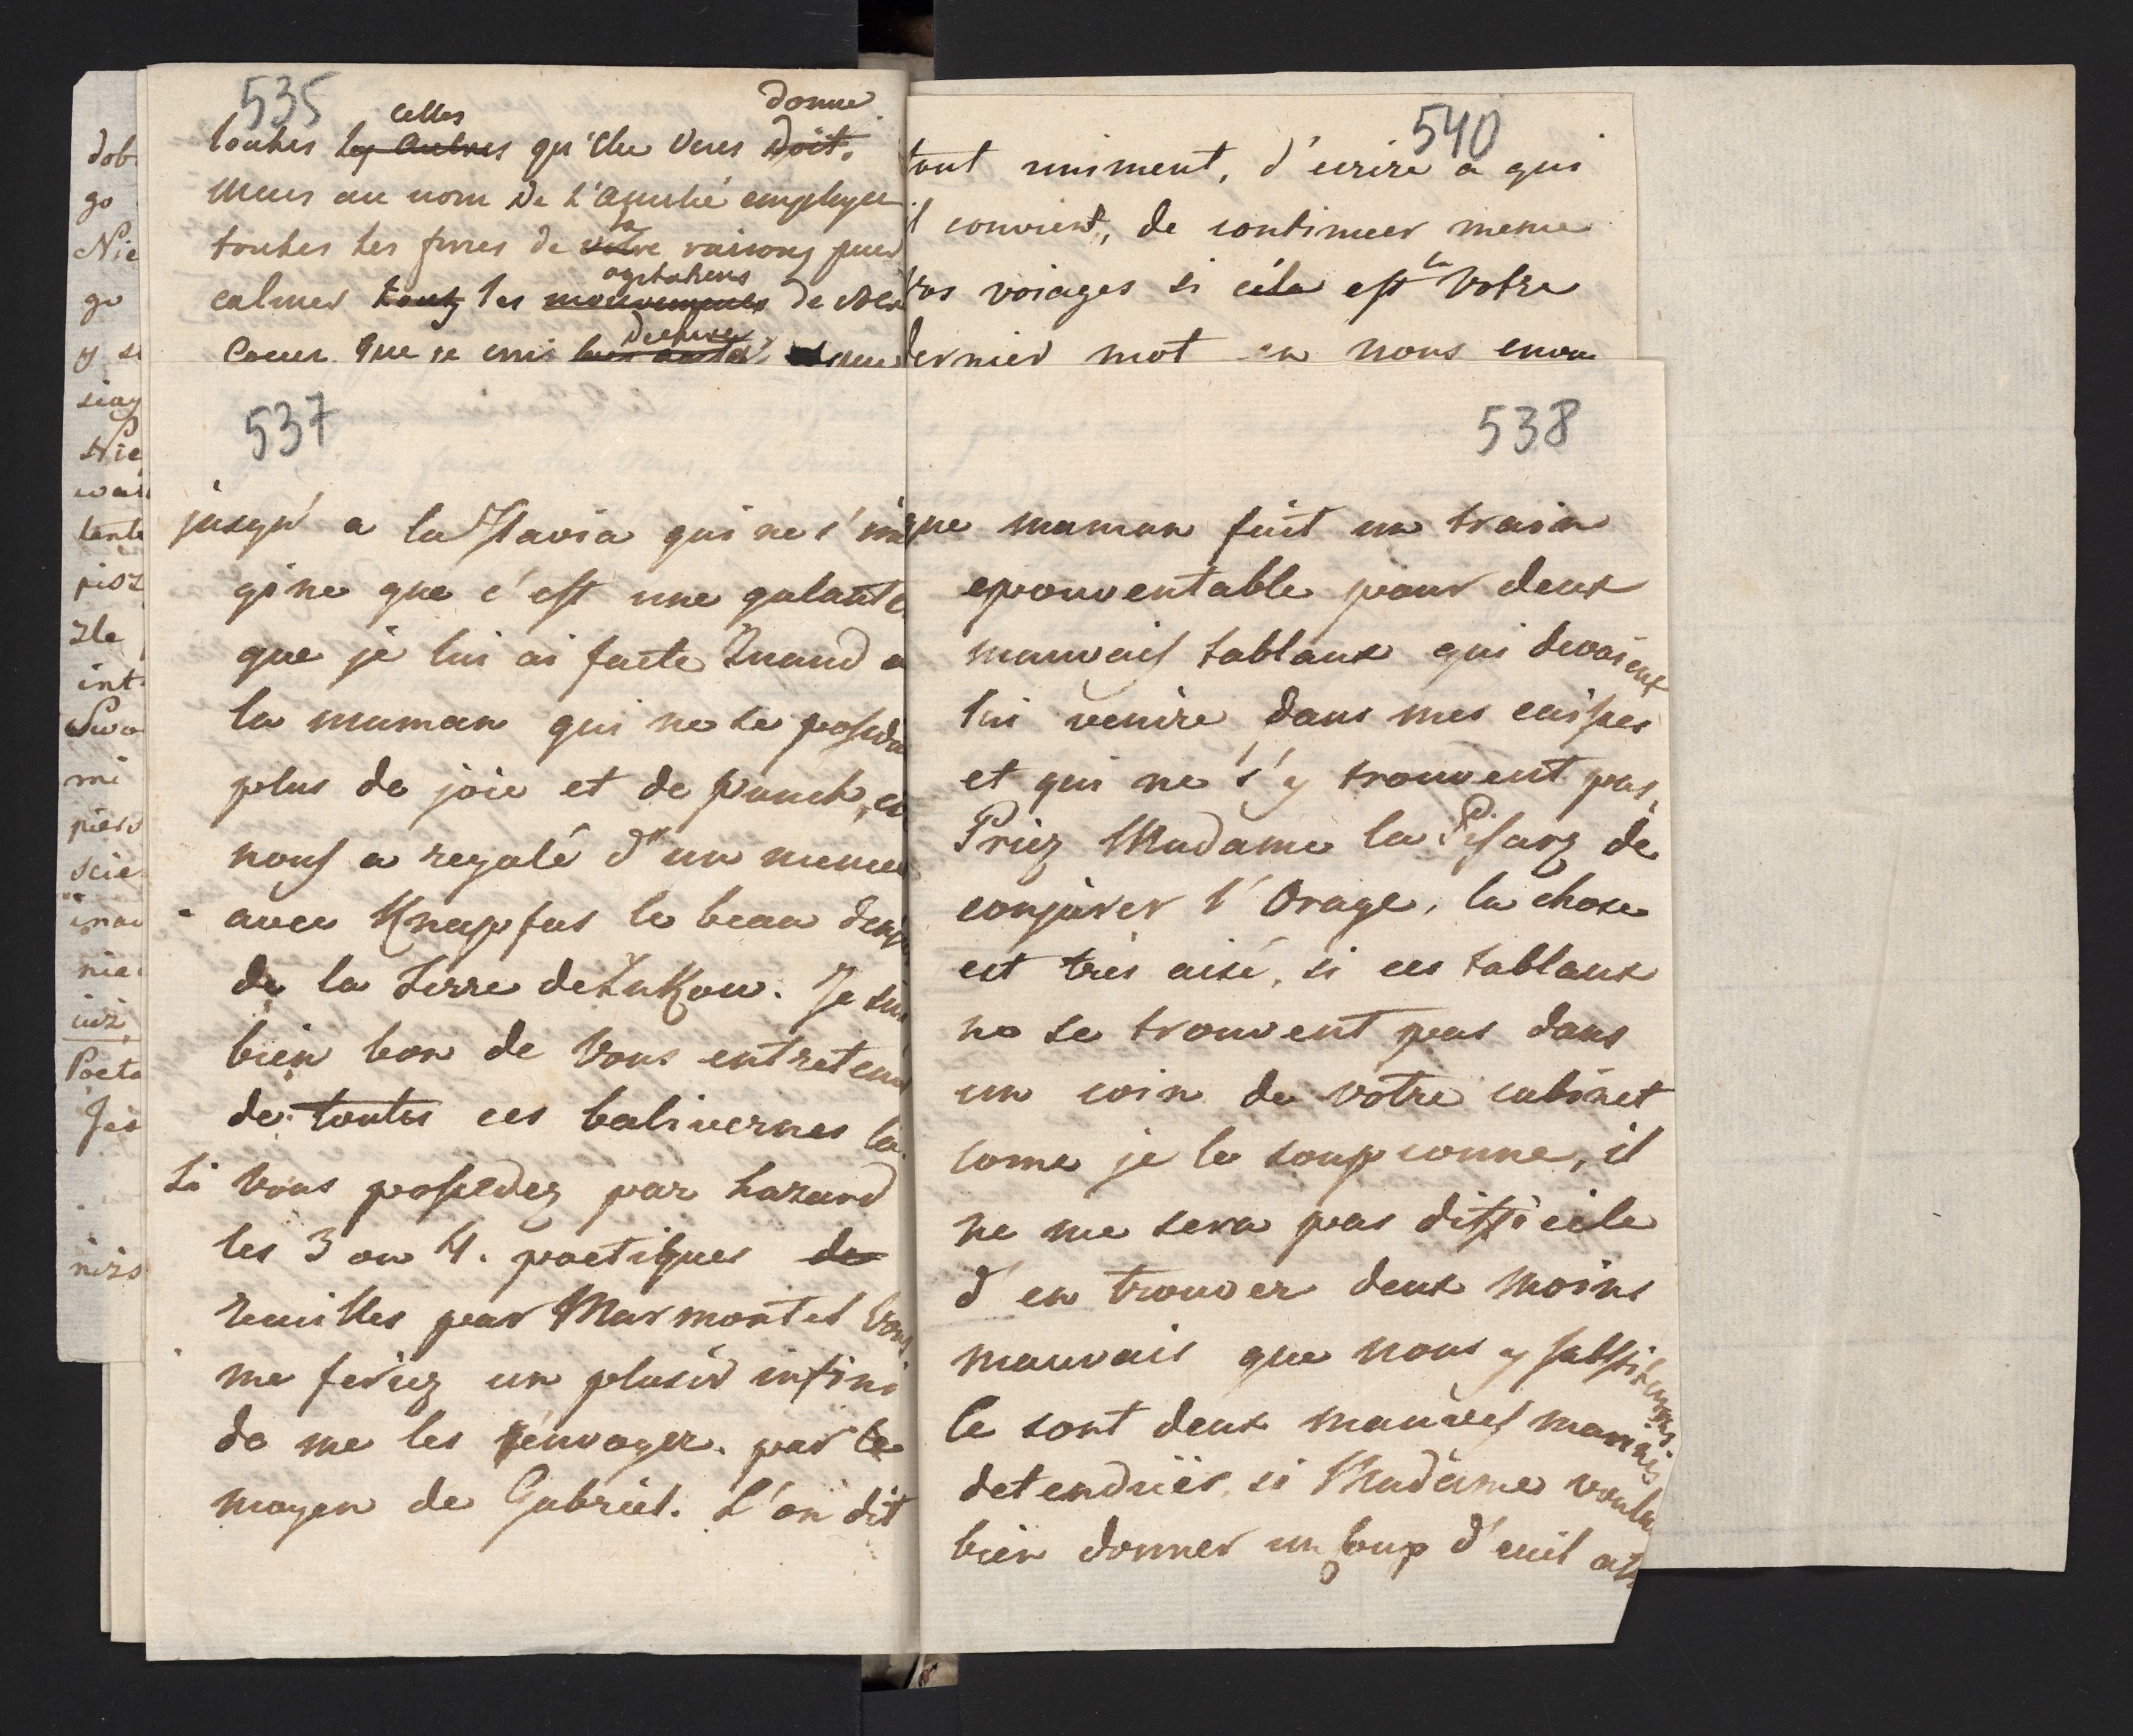 535
celles donne
toutes les autres qu'elle vous doit.
Mais au nom de l'amitié employer
toutes les forces de votre la raisons pour
calmer tous les mouvements agitations de
Coeur que je crois
537
jusqu' a la Flavia qui ne s'ima
gine que c'est une galante
que je lui ai faite Quand a
la maman qui ne se posseda
plus de joie et de Punch, et
nous a regalé d'un menue
avec Knapfus le beau
de la Terre de Zukow. Je sui
bien bon de Vous entretenir
de toutes ces balivernes la.
Si Vous possedez par hazard
les 3 ou 4. poetiques de
reuilles par Marmontel Vous
me feriez un plaisir infini
de me les renvoyer. par le
moyen de Gabriel. L'on dit
540
tout uniment, d'ecrire a qui
il convient, de continuer meme
vos voiages si cela est la Votre
dernier mot en nous
538
que maman fait un train
epouventable pour deux
mauvais tablaux qui devaient
lui venire dans mes caisses
et qui ne s'y trouvent pas,
Priez Madame la Pisarz de
conjurer l'Orage, la chose
est très aisé, si ces tablaux
ne se trouvent pas dans
un coin de votre cabinet
come je le soupconne, il
ne me sera pas difficile
d'en trouver deux moins
mauvais que nous y
Ce sont deux
detenduës, si Madame voula
bien donner un Coup d'euil
dob
go
Nie
go
y si
siag
Nie
tente
pisz
zle
int
Swo
mi
pierw
scie
nie
iuz
Poeta
Jes